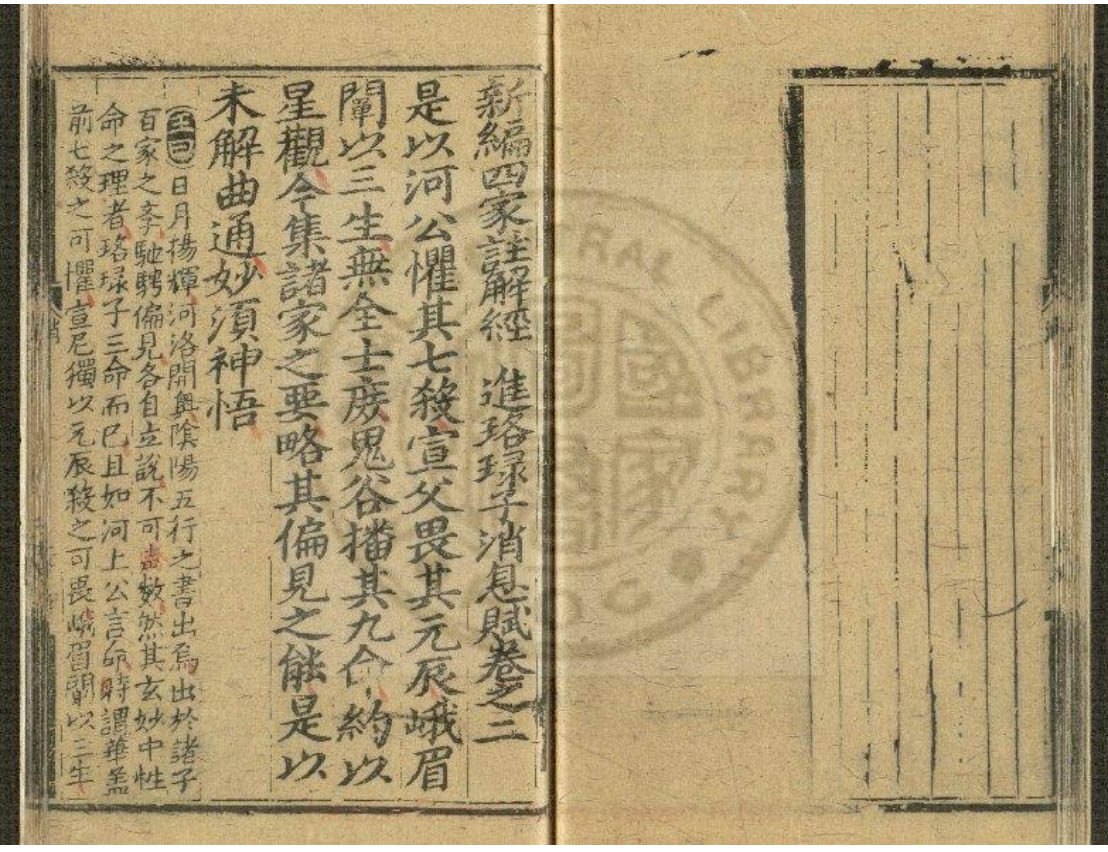 新編四家註解經 進珞琭子消息賦卷之二
是以河公懼其七殺宣父畏其元辰峨眉
闡以三生無全士庶鬼谷播其九命約以
星觀今集諸家之要略其偏見之能是以
未解曲通妙須神悟
日月揚輝河洛開奧陰陽五行之書出焉出於諸子
百家之李馳騁偏見各自立說不可數然其玄妙中性
命之理者珞琭子三命而已且如河上公言命時謂華盖
前七殺之可懼宣尼獨以元辰殺之可畏峨眉闡以三生
CENTRAL LIBRARY